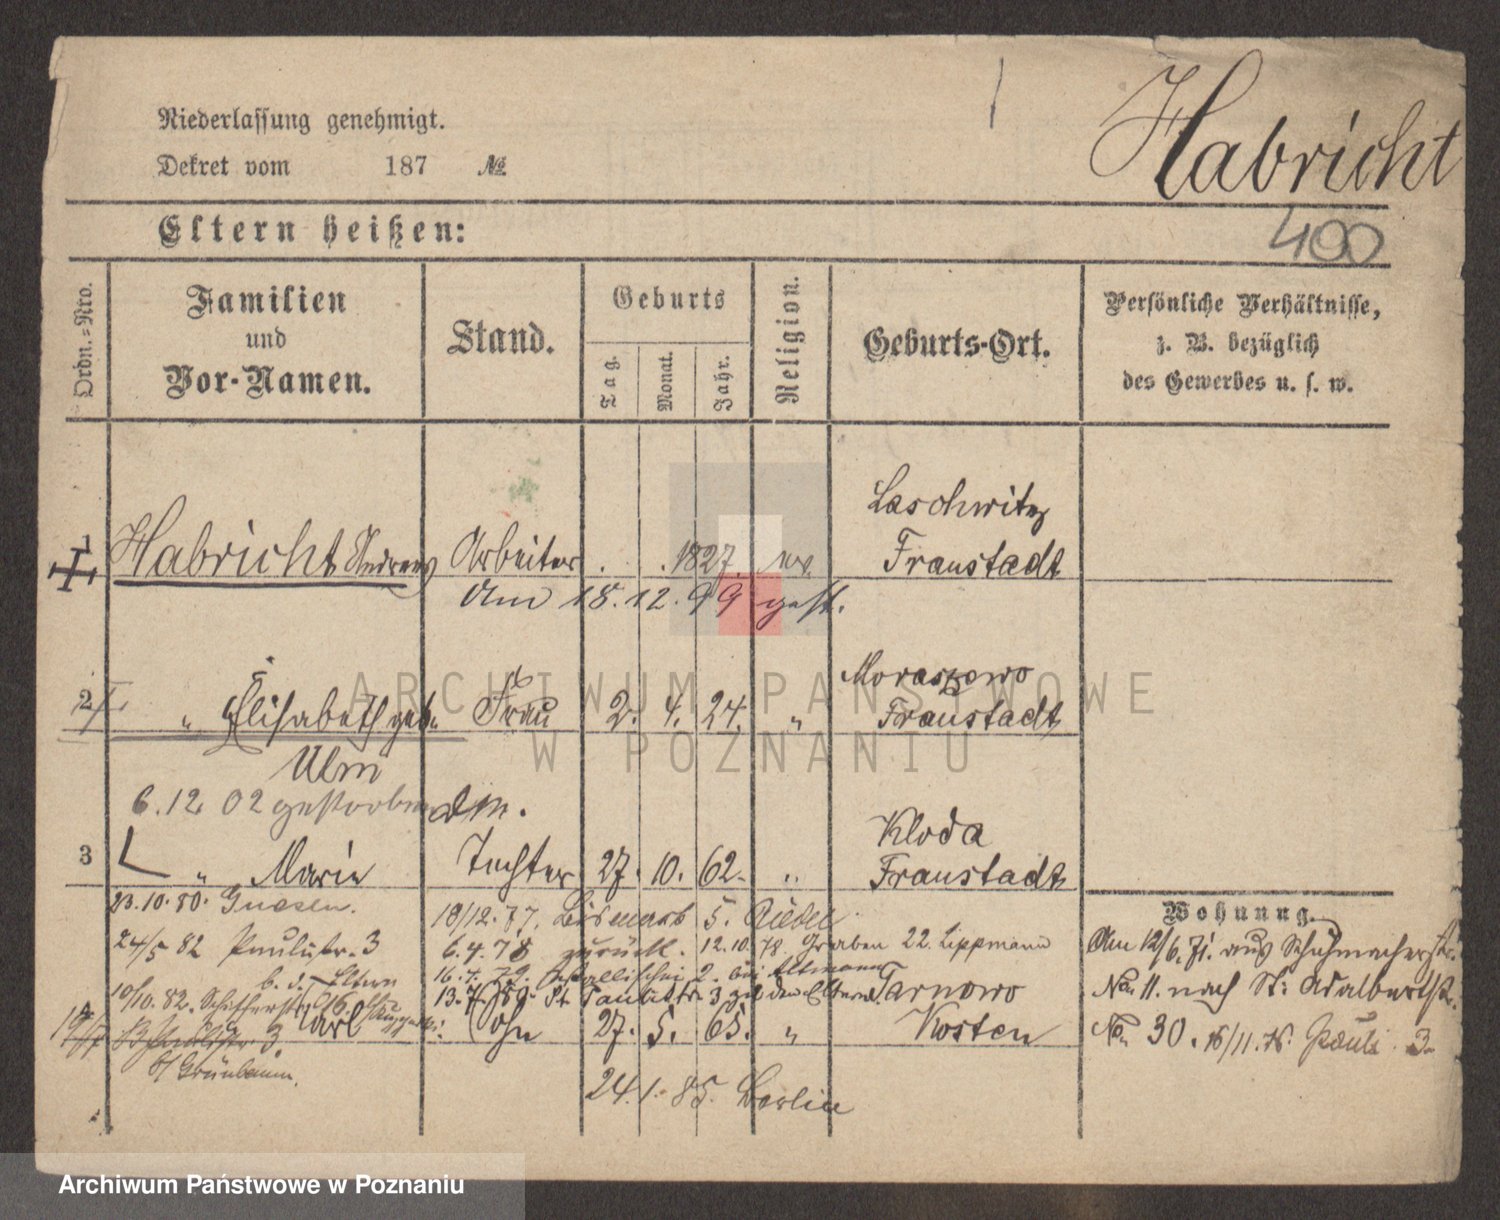 Niederlassung genehmigt.
Dekret vom 187 №
Habricht
400
Eltern heißen:
Ordn.-Nro.
Familien
und
Vor-Namen.
Stand.
Geburts
Tag.
Monat.
Jahr.
Religion.
Geburts-Ort.
Persönliche Verhältnisse,
z. B. bezüglich
des Gewerbes u. s. w.
Laschwitz
1 Habricht Andreas Arbeiter . . 1827. Fraustadt
Am 18.12.99 gest.
Moraszewo
2 " Elisabeth geb. Frau 2. 4. 24. " Fraustadt
Ulm
6.12. 02 gestorben
Kloda
3 " Marie Tochter 27. 10. 62. " Fraustadt
23.10.80. Gnesen.
18/12.77. Bismark 5.
Wohnung.
24/5 82 Paulistr. 3
6.4.78 zurück. 12.10.78. Graben 22. Lippmann
Am 12/6.71. aus Schuhmacherstr.
b. d. Eltern
16.7.79. 2. bei Altmann
10/10.82. Schifferstr.
Paulistr. 3 zu den Eltern.
Tarnowo
No. 11. nach St. Adalbertstr.
Karl Sohn 27. 5. 65. " Kosten
No. 30. 16/11.76. Pauli 3.
b/ Grünbaum.
24.1.85. Berlin
ARCHIWUM PAŃSTWOWE
W POZNANIU
Archiwum Państwowe w Poznaniu